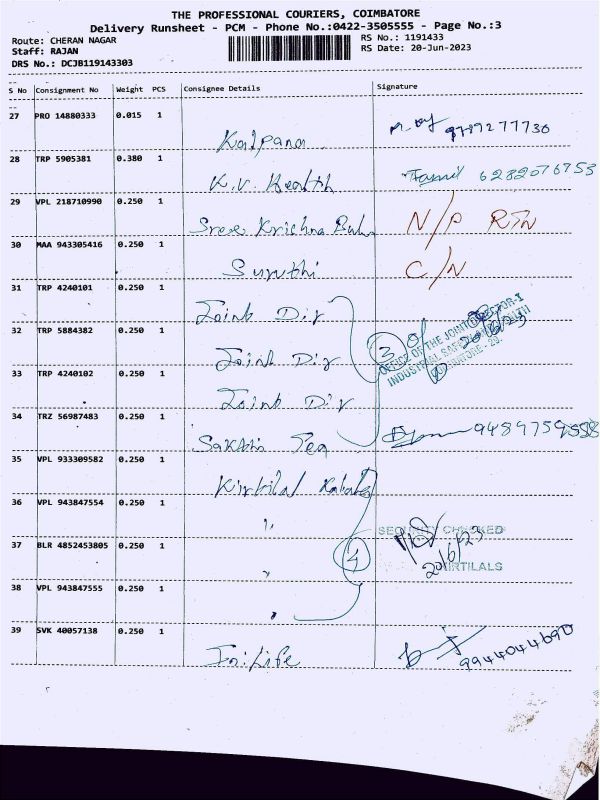 THE PROFESSIONAL COURIERS, COIMBATORE
Delivery Runsheet - PCM - Phone No.:0422-3505555 - Page No.:3
Route: CHERAN NAGAR
RS No.: 1191433
Staff: RAJAN
RS Date: 20-Jun-2023
DRS No.: DCJB119143303
S No Consignment No Weight PCS Consignee Details Signature
27 PRO 14880333 0.015 1
Kalpana 9789277730
28 TRP 5905381 0.380 1
K.V. Health Tamil 6282076753
29 VPL 218710990 0.250 1
Sree Krishna N/P RTN
30 MAA 943305416 0.250 1
Suruthi C/N
31 TRP 4240101 0.250 1
Joint Dir
32 TRP 5884382 0.250 1
Joint Dir 3
OFFICE OF THE JOINT DIRECTOR-I
INDUSTRIAL SAFETY AND HEALTH
COIMBATORE
33 TRP 4240102 0.250 1
Joint Dir
34 TRZ 56987483 0.250 1
Sakthi Tea
35 VPL 933309582 0.250 1
Kirtilal
36 VPL 943847554 0.250 1
"
SECURITY CHECKED
37 BLR 4852453805 0.250 1
" 4
20/6/23
KIRTILALS
38 VPL 943847555 0.250 1
"
39 SVK 40057138 0.250 1
9944044690